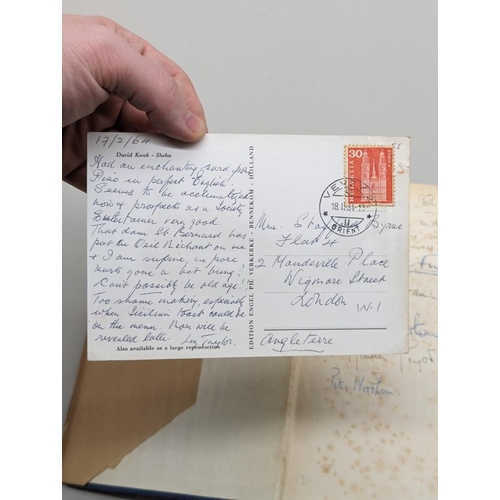 17/2/64
David Kwok - Sheba
Had an enchanting card from
Pino in perfect English.
Seems to be acclimatized
now & prospects as a Society
Entertainer very good
That dam St Bernard has
put the Oeil Méchant on me
& I am supine, as poor
hearts gone a bit bung.
Can't possibly be old age!
Too shame making, especially
when Sicilian toast could be
on the menu. Plan will be
revealed later. Liz Taylor.
Also available as a large reproduction
EDITION ENGEL PIÉ VERKERKE - BENNEKOM - HOLLAND
30
HELVETIA
VEVEY
ORIENT
Mme.
Flat 4
2 Mandeville Place
Wigmore Street
London
W.1
Angleterre
Peter